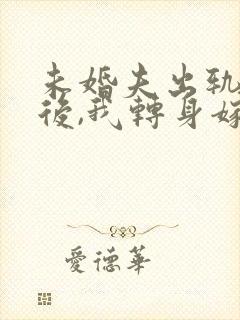 未婚夫出軌
後,我轉身嫁
愛德華